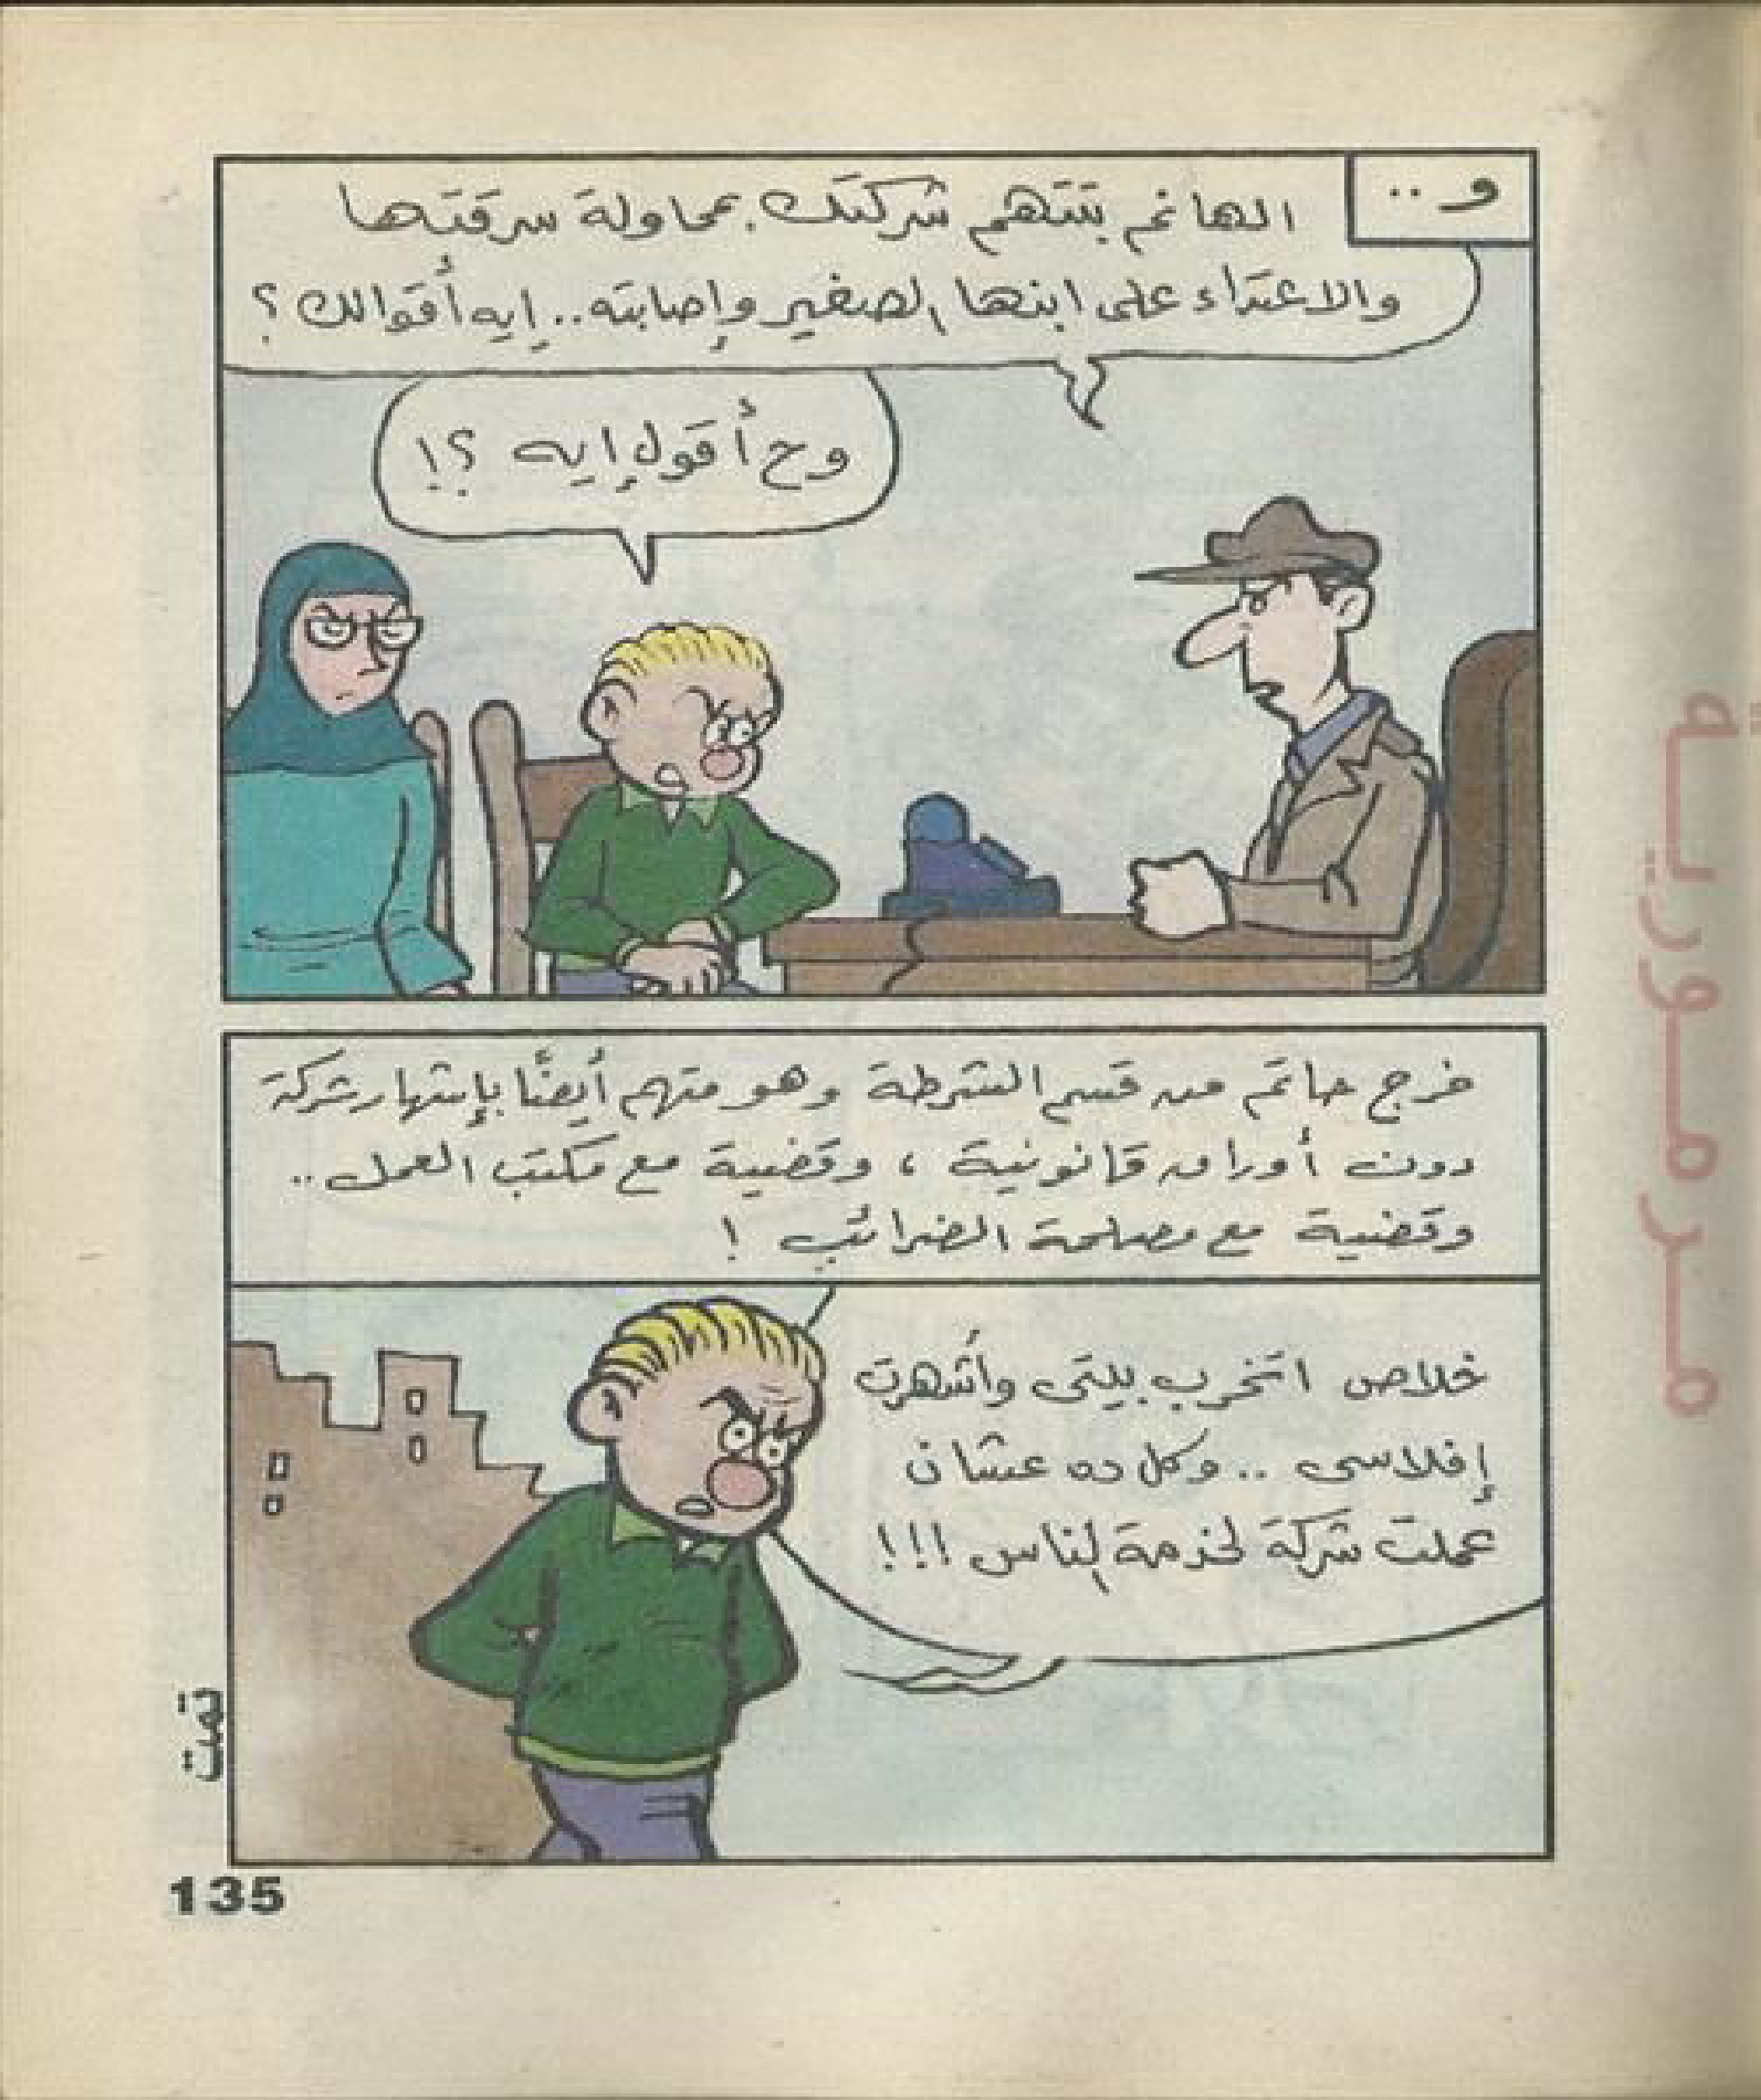 و ..
الهانم بتتهم شركتك بمحاولة سرقتها
والاعتداء على ابنها الصغير وإصابته.. إيه أقوالك ؟
وح أقول إيه ؟!
خرج حاتم من قسم الشرطة وهو متهم أيضًا بإشهار شركة
دون أوراق قانونية ، وقضية مع مكتب العمل ..
وقضية مع مصلحة الضرائب !
خلاص اتخرب بيتى وأشهرت
إفلاسى .. وكل ده عشان
عملت شركة لخدمة الناس !!!
تمت
135